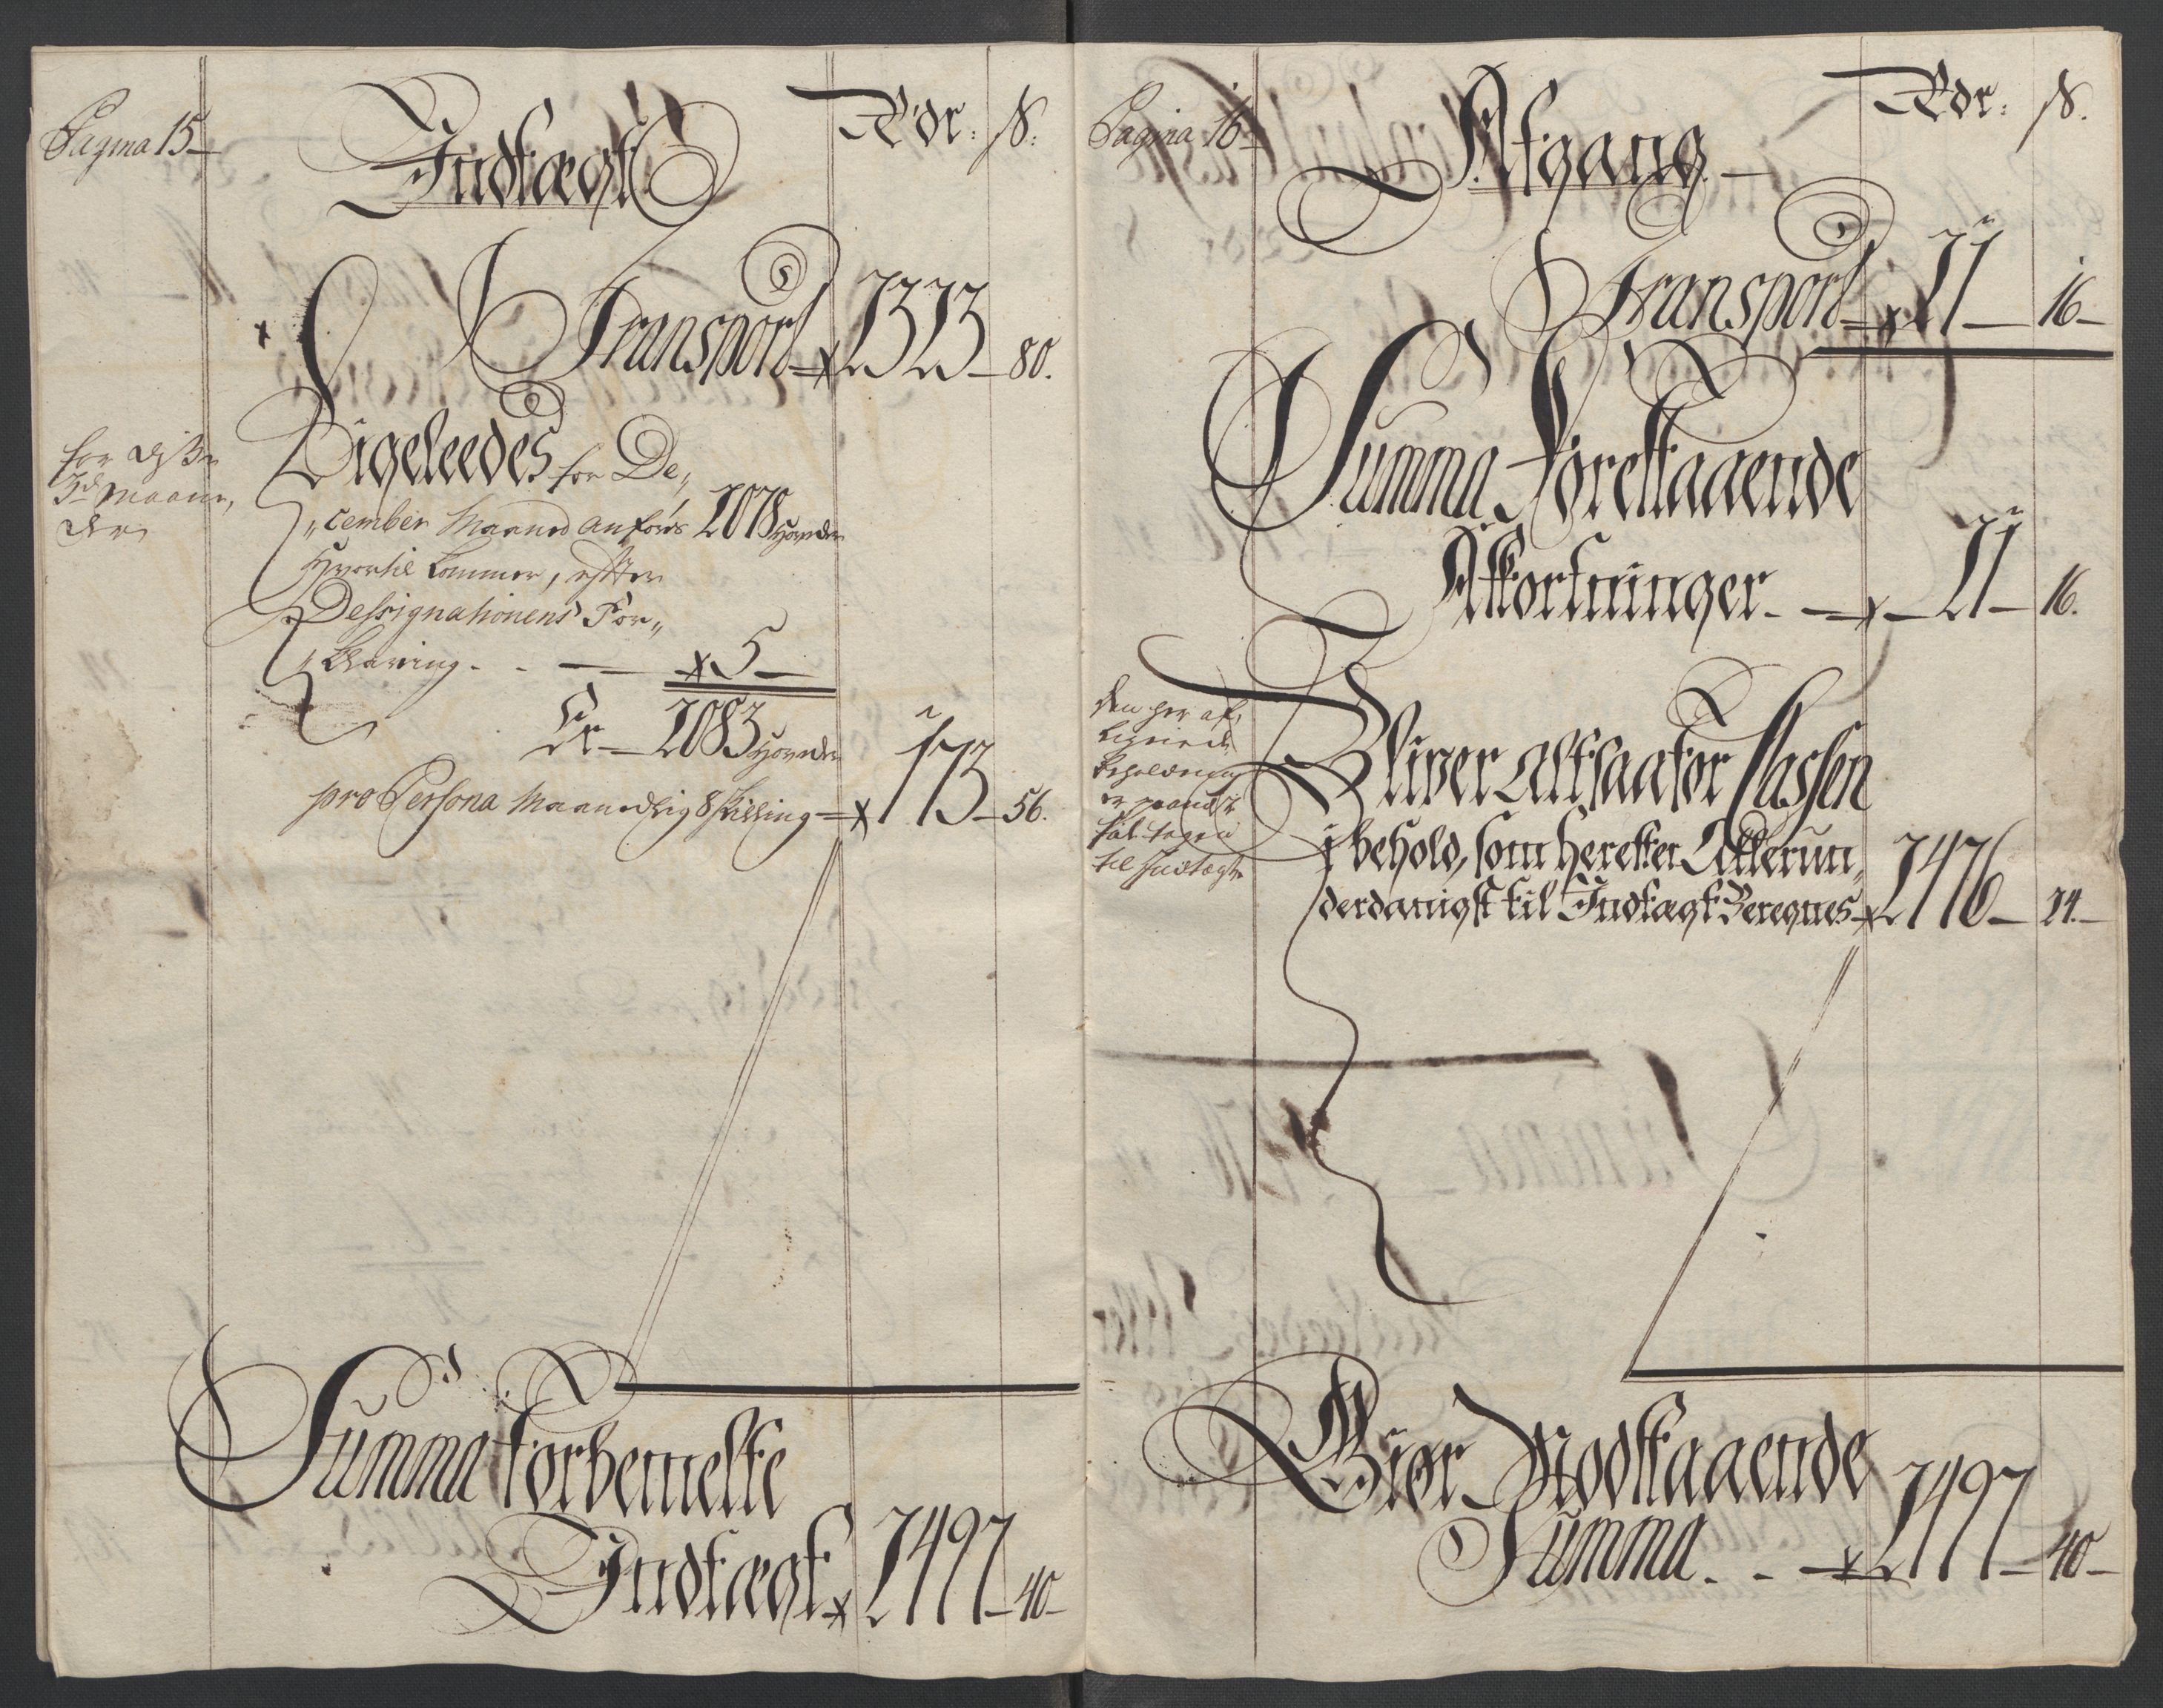 Pagina 15
Indtægt
Rdr: ß:
Transport 2323 80.
Ligeleedes for De„
„cember Maaned anføris 2078 Hoveder
Hvortil kommer, efter
Designationens For„
klaring - - 5
Er 2083 Hoveder
pro Persona Maanedlig 8 skilling 173 56.
Summa forbemelte
Indtægt 2497 40
Pagina 16
Afgang
Rdr: ß.
Transport 21 16
Summa Forestaaende
Afkortninger 21 16.
Bliver altsaa for Cassen
i behold, som herefter Allerun„
derdanigst til Indtægt Beregnes 2476 24.
til Indtægt
Giør Modstaaende
Summa. - 2497 40